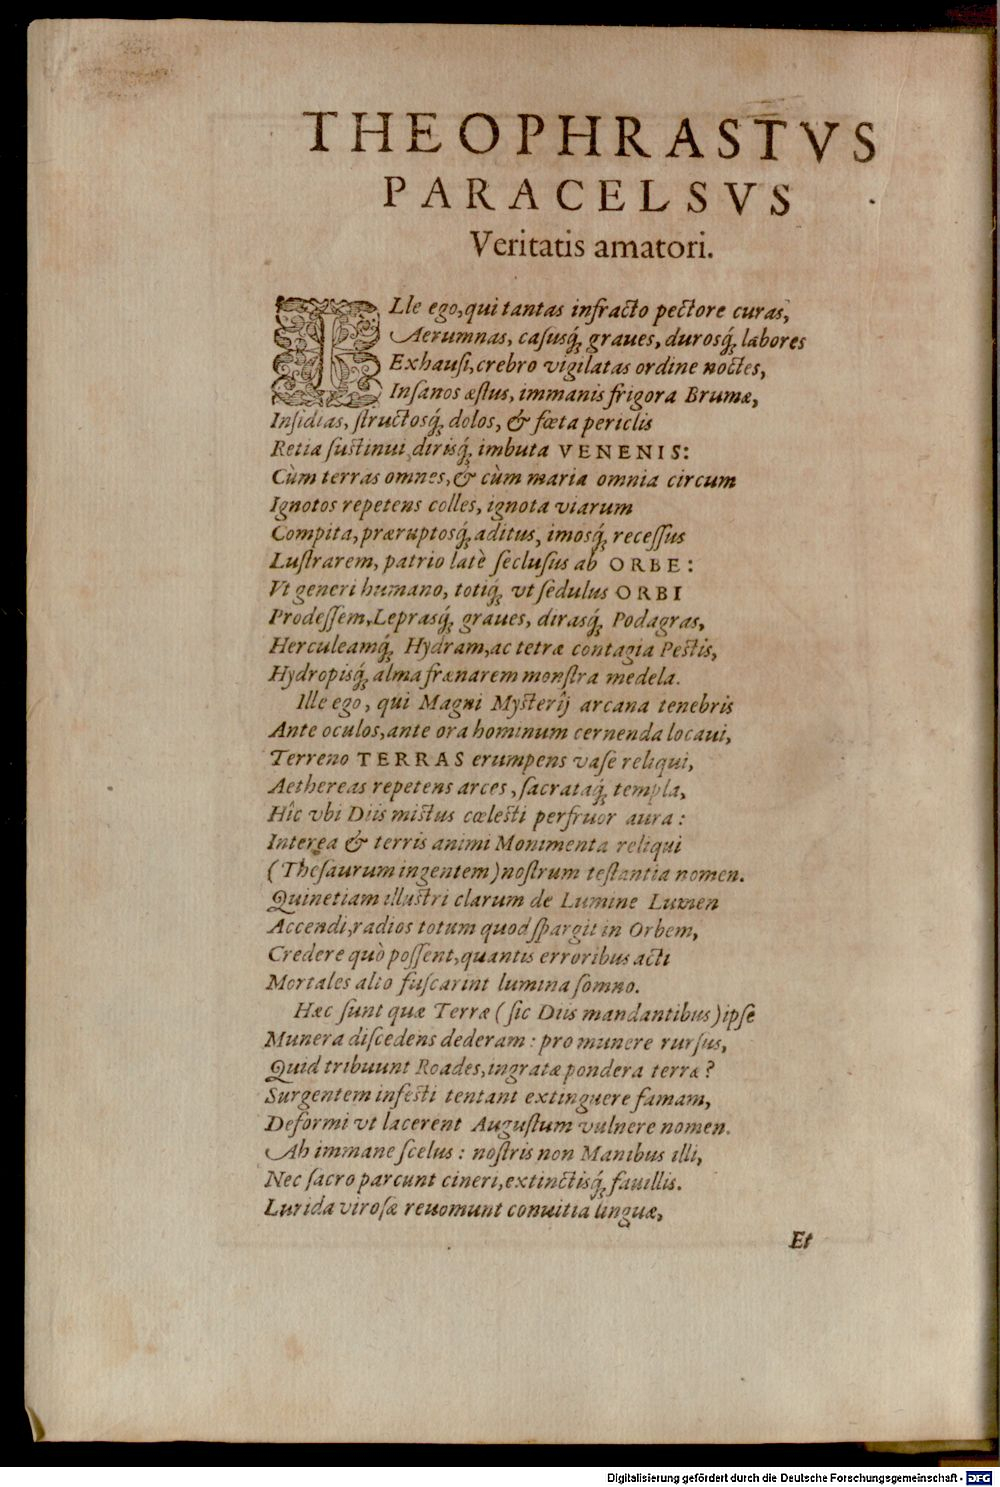 THEOPHRASTVS
PARACELSVS
Veritatis amatori.
ILle ego, qui tantas infracto pectore curas,
Aerumnas, casusq́; graues, durosq́; labores
Exhausi, crebro vigilatas ordine noctes,
Insanos æstus, immanis frigora Brumæ,
Insidias, structosq́; dolos, & fœta periclis
Retia sustinui dirisq́; imbuta VENENIS:
Cùm terras omnes, & cùm maria omnia circum
Ignotos repetens colles, ignota viarum
Compita, præruptosq́; aditus, imosq́; recessus
Lustrarem, patrio latè seclusus ab ORBE:
Vt generi humano, totiq́; vt sedulus ORBI
Prodessem, Leprasq́; graues, dirasq́; Podagras,
Herculeamq́; Hydram, ac tetræ contagia Pestis,
Hydropisq́; alma frænarem monstra medela.
Ille ego, qui Magni Mysterij arcana tenebris
Ante oculos, ante ora hominum cernenda locaui,
Terreno TERRAS erumpens vase reliqui,
Aethereas repetens arces, sacrataq́; templa,
Hîc vbi Diis mistus cœlesti perfruor aura:
Interea & terris animi Monimenta reliqui
(Thesaurum ingentem) nostrum testantia nomen.
Quinetiam illustri clarum de Lumine Lumen
Accendi, radios totum quod spargit in Orbem,
Credere quò possent, quantis erroribus acti
Mortales alto fuscarint lumina somno.
Hæc sunt quæ Terræ (sic Diis mandantibus) ipse
Munera discedens dederam: pro munere rursus,
Quid tribuunt Roades, ingratæ pondera terræ?
Surgentem infesti tentant extinguere famam,
Deformi vt lacerent Augustum vulnere nomen.
Ah immane scelus: nostris non Manibus illi,
Nec sacro parcunt cineri, extinctisq́; fauillis.
Lurida virosæ reuomunt conuitia linguæ,
Et
Digitalisierung gefördert durch die Deutsche Forschungsgemeinschaft - DFG